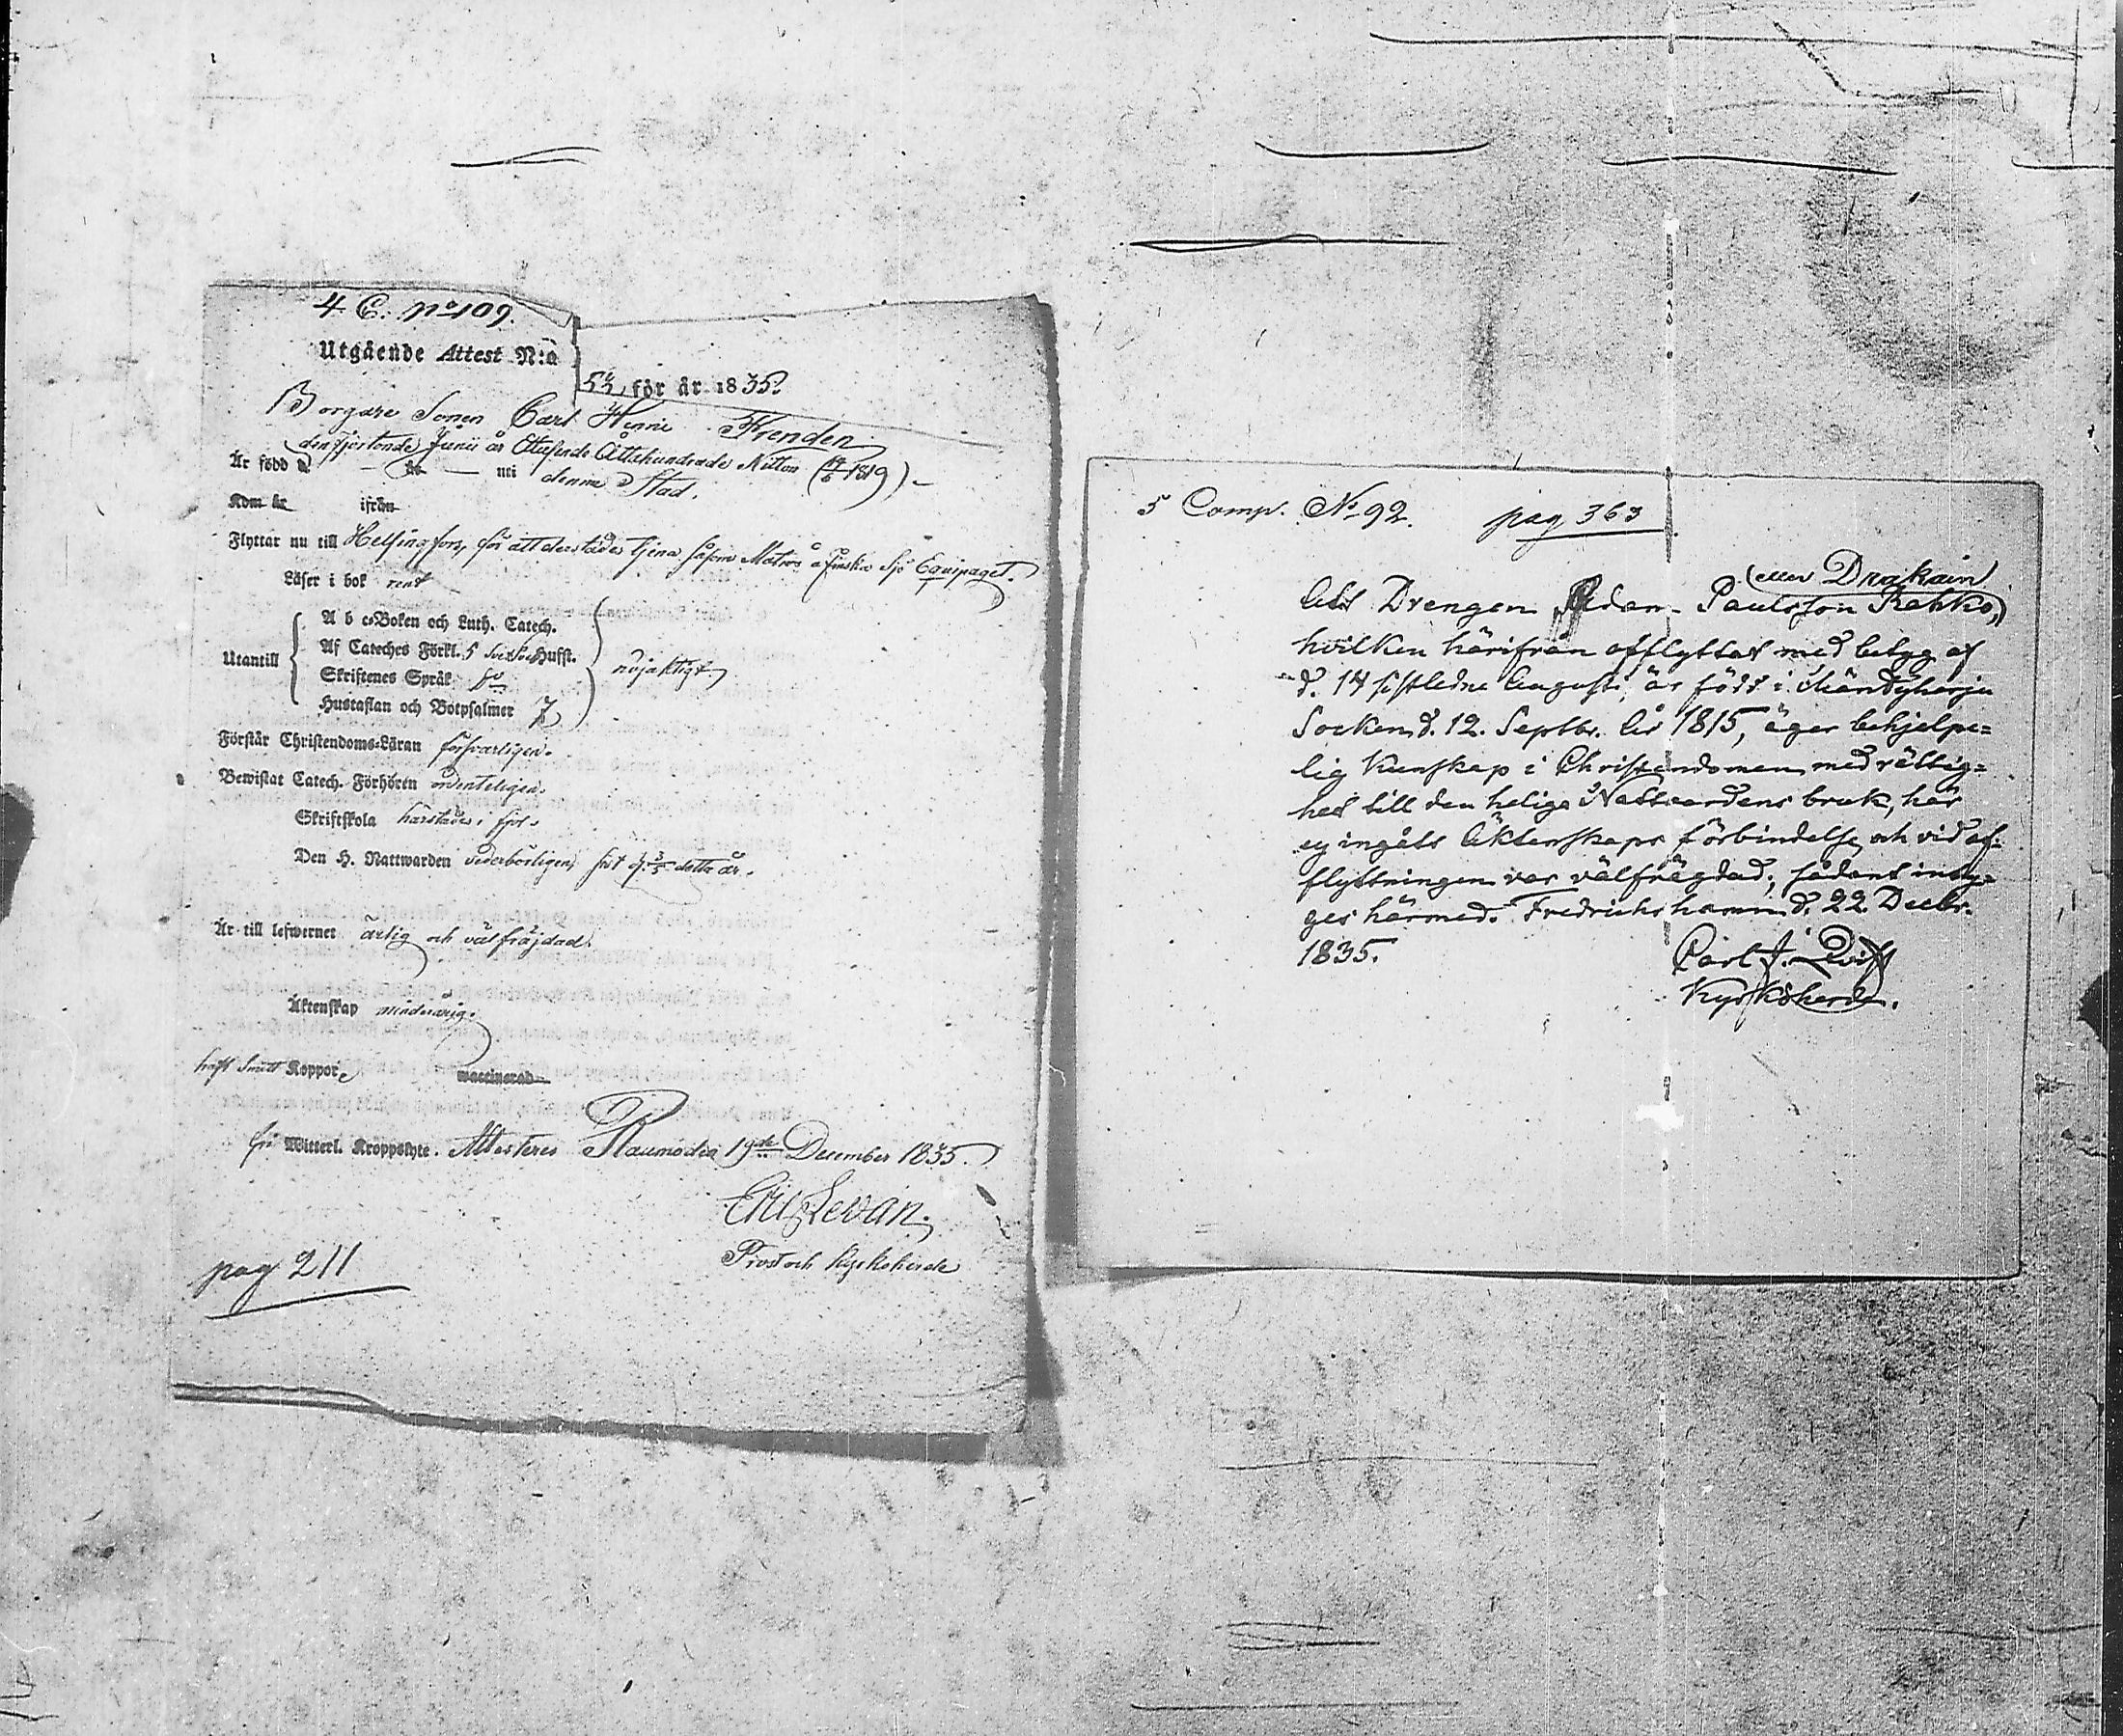 4 C. No 109.
Utgående Attest N:o
53 för år 1835.
Borgare Sonen Carl Henric Frenden
den fjortonde Junii år Ettusende Åttahundrade Nitton (14/6 1819)
Är född i denna Stad.
Kom år ifrån
Flyttar nu till Helsingfors, för att derstädes tjena såsom Matros å finska Sjö Equipaget.
Läser i bok rent
A b c-Boken och Luth. Catech.
Af Cateches Förkl. 5 Hufst.
Utantill nöjaktigt
Skriftenes Språk
Hustaflan och Botpsalmer 7
Förstår Christendoms-Läran försvarligen.
Bewistat Catech. Förhören ordenteligen.
Skriftskola härstädes i fjol.
Den H. Nattwarden vederbörligen, sist d. 3/5 detta år.
Är till lefwernet ärlig och välfräjdad.
Äktenskap minderårig.
haft Smått Koppor, waccinerad
fri Witterl. Kroppslyte. Attesteres Raumo den 19de December 1835.
Eric Levan.
Prost och Kyrkoherde
pag 211
5 Comp. No 92. pag 363
(eller Drakain)
Att Drengen Adam Paulsson Rahko,
hvilken härifrån afflyttat med betyg af
d. 14 sistledne Augusti, är född i Mäntyharju
Socken d. 12. Septbr. år 1815, äger behjelpe-
lig Kunskap i Christendomen med rättig-
het till den heliga Nattvardens bruk, har
ej ingått Äktenskaps förbindelse och vid af-
flyttningen var välfrägdad; sådant inty-
gas härmed. Fredrichshamn d. 22 Decbr.
1835.
Carl J. Qvist
Kyrkoherde.